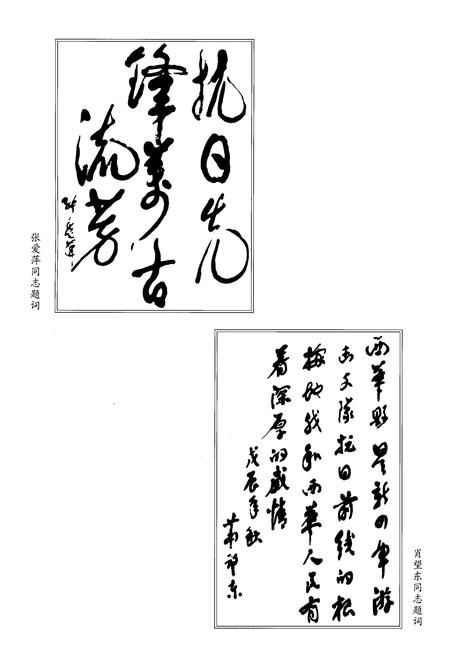 抗日先
鋒萬古
流芳
张爱萍
张爱萍同志题词
西華縣是新四軍游
击支隊抗日前线的根
据地我和西華人民有
着深厚的感情
戊辰年秋
萧望东
肖望东同志题词